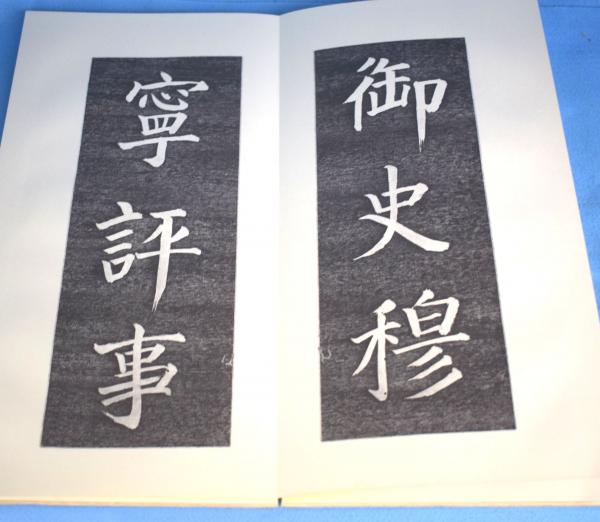 御史穆
寧評事